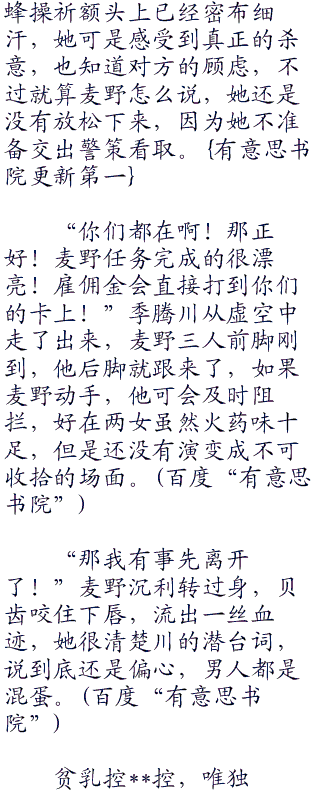 蜂操祈额头上已经密布细
汗，她可是感受到真正的杀
意，也知道对方的顾虑，不
过就算麦野怎么说，她还是
没有放松下来，因为她不准
备交出警策看取。{有意思书
院更新第一}
“你们都在啊！那正
好！麦野任务完成的很漂
亮！雇佣金会直接打到你们
的卡上！”季腾川从虚空中
走了出来，麦野三人前脚刚
到，他后脚就跟来了，如果
麦野动手，他可会及时阻
拦，好在两女虽然火药味十
足，但是还没有演变成不可
收拾的场面。(百度“有意思
书院”)
“那我有事先离开
了！”麦野沉利转过身，贝
齿咬住下唇，流出一丝血
迹，她很清楚川的潜台词，
说到底还是偏心，男人都是
混蛋。(百度“有意思书
院”)
贫乳控**控，唯独